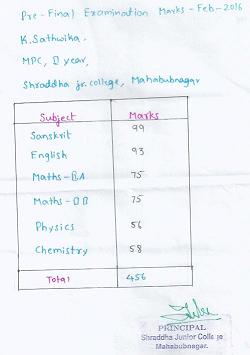 Pre - Final Examination Marks - Feb - 2016
K. Sathwika.
MPC, II year,
Shraddha jr. college, Mahabubnagar
Subject Marks
Sanskrit 99
English 93
Maths - II A 75
Maths - II B 75
Physics 56
Chemistry 58
Total 456
PRINCIPAL
Shraddha Junior College
Mahabubnagar.